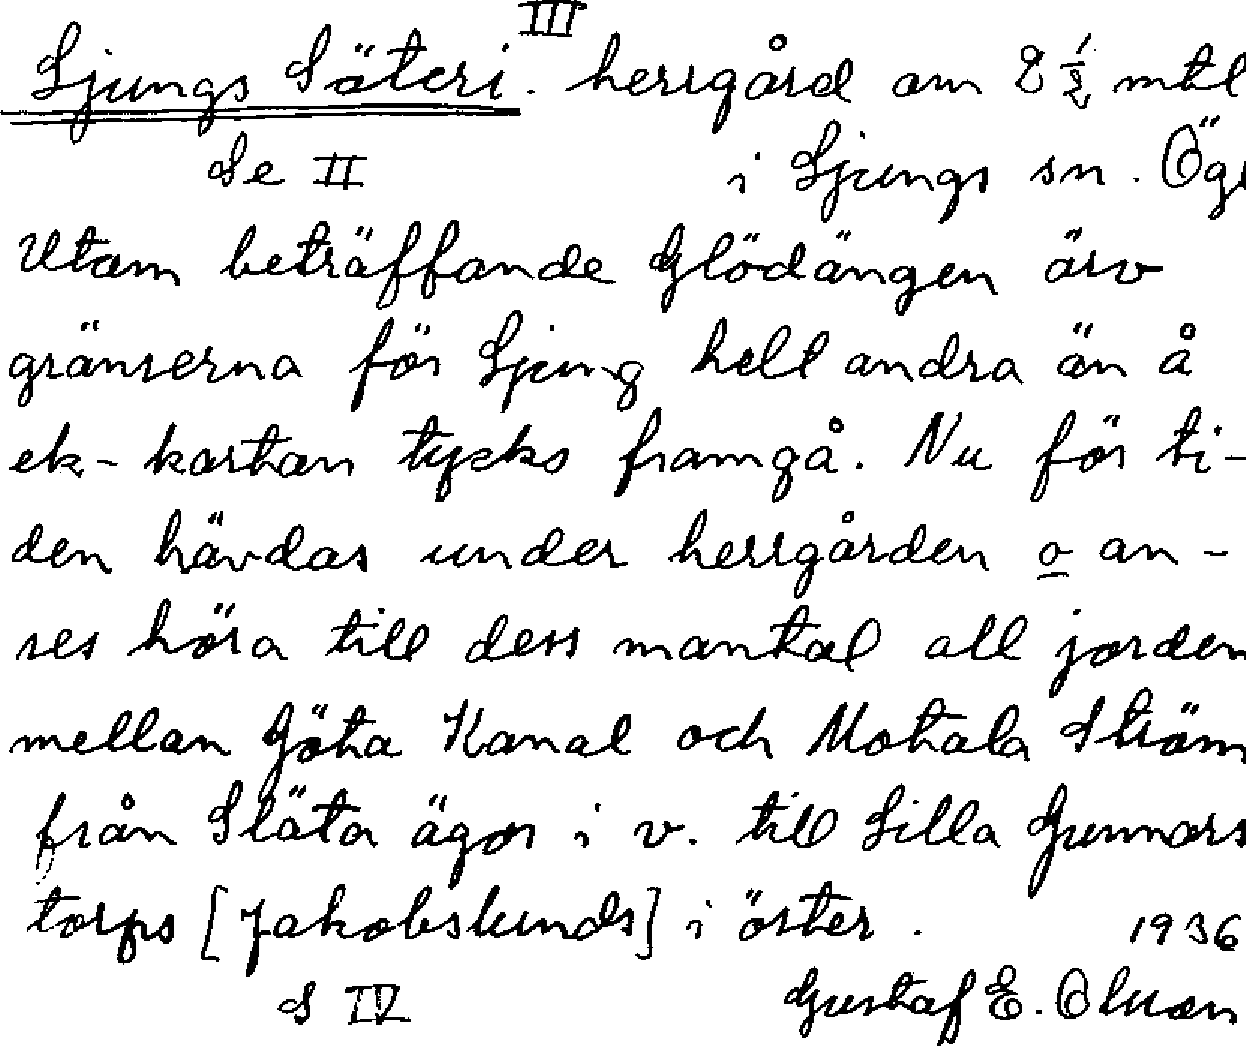 III
Ljungs Säteri. herrgård om 8 1/2 mtl
Se II i Ljungs sn. Ögl
Utom beträffande Glödängen äro
gränserna för Ljung helt andra än å
ek-kartan tycks framgå. Nu för ti-
den hävdas under herrgården o an-
ses höra till dess mantal all jorden
mellan Göta Kanal och Motala Ström
från Släta ägor i v. till Lilla Gunnars
torps [Jakobslunds] i öster.
1936
S IV Gustaf E. Olsson